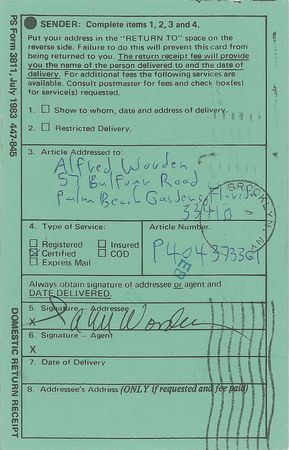 PS Form 3811, July 1983 447-845
SENDER: Complete items 1, 2, 3 and 4.
Put your address in the "RETURN TO" space on the
reverse side. Failure to do this will prevent this card from
being returned to you. The return receipt fee will provide
you the name of the person delivered to and the date of
delivery. For additional fees the following services are
available. Consult postmaster for fees and check box(es)
for service(s) requested.
1. ☐ Show to whom, date and address of delivery.
2. ☐ Restricted Delivery.
3. Article Addressed to:
Alfred Worden
57 Balfour Road
Palm Beach Gardens, Florida
33410
BROOKLYN, NY
4. Type of Service:
☐ Registered ☐ Insured
☒ Certified ☐ COD
☐ Express Mail
Article Number
P404373361
FEB
Always obtain signature of addressee or agent and
DATE DELIVERED.
5. Signature – Addressee
X Worden
6. Signature – Agent
X
7. Date of Delivery
8. Addressee's Address (ONLY if requested and fee paid)
DOMESTIC RETURN RECEIPT